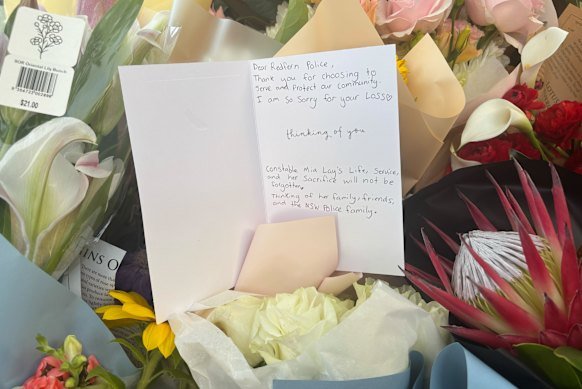 BOR Oriental Lily Bunch
$21.00
Dear Redfern Police,
Thank you for choosing to
serve and protect our community.
I am so sorry for your Loss♡
thinking of you
Constable Mia Lay's Life, Service,
and her Sacrifice will not be
forgotten.
Thinking of her family, friends,
and the NSW Police family.
INS O